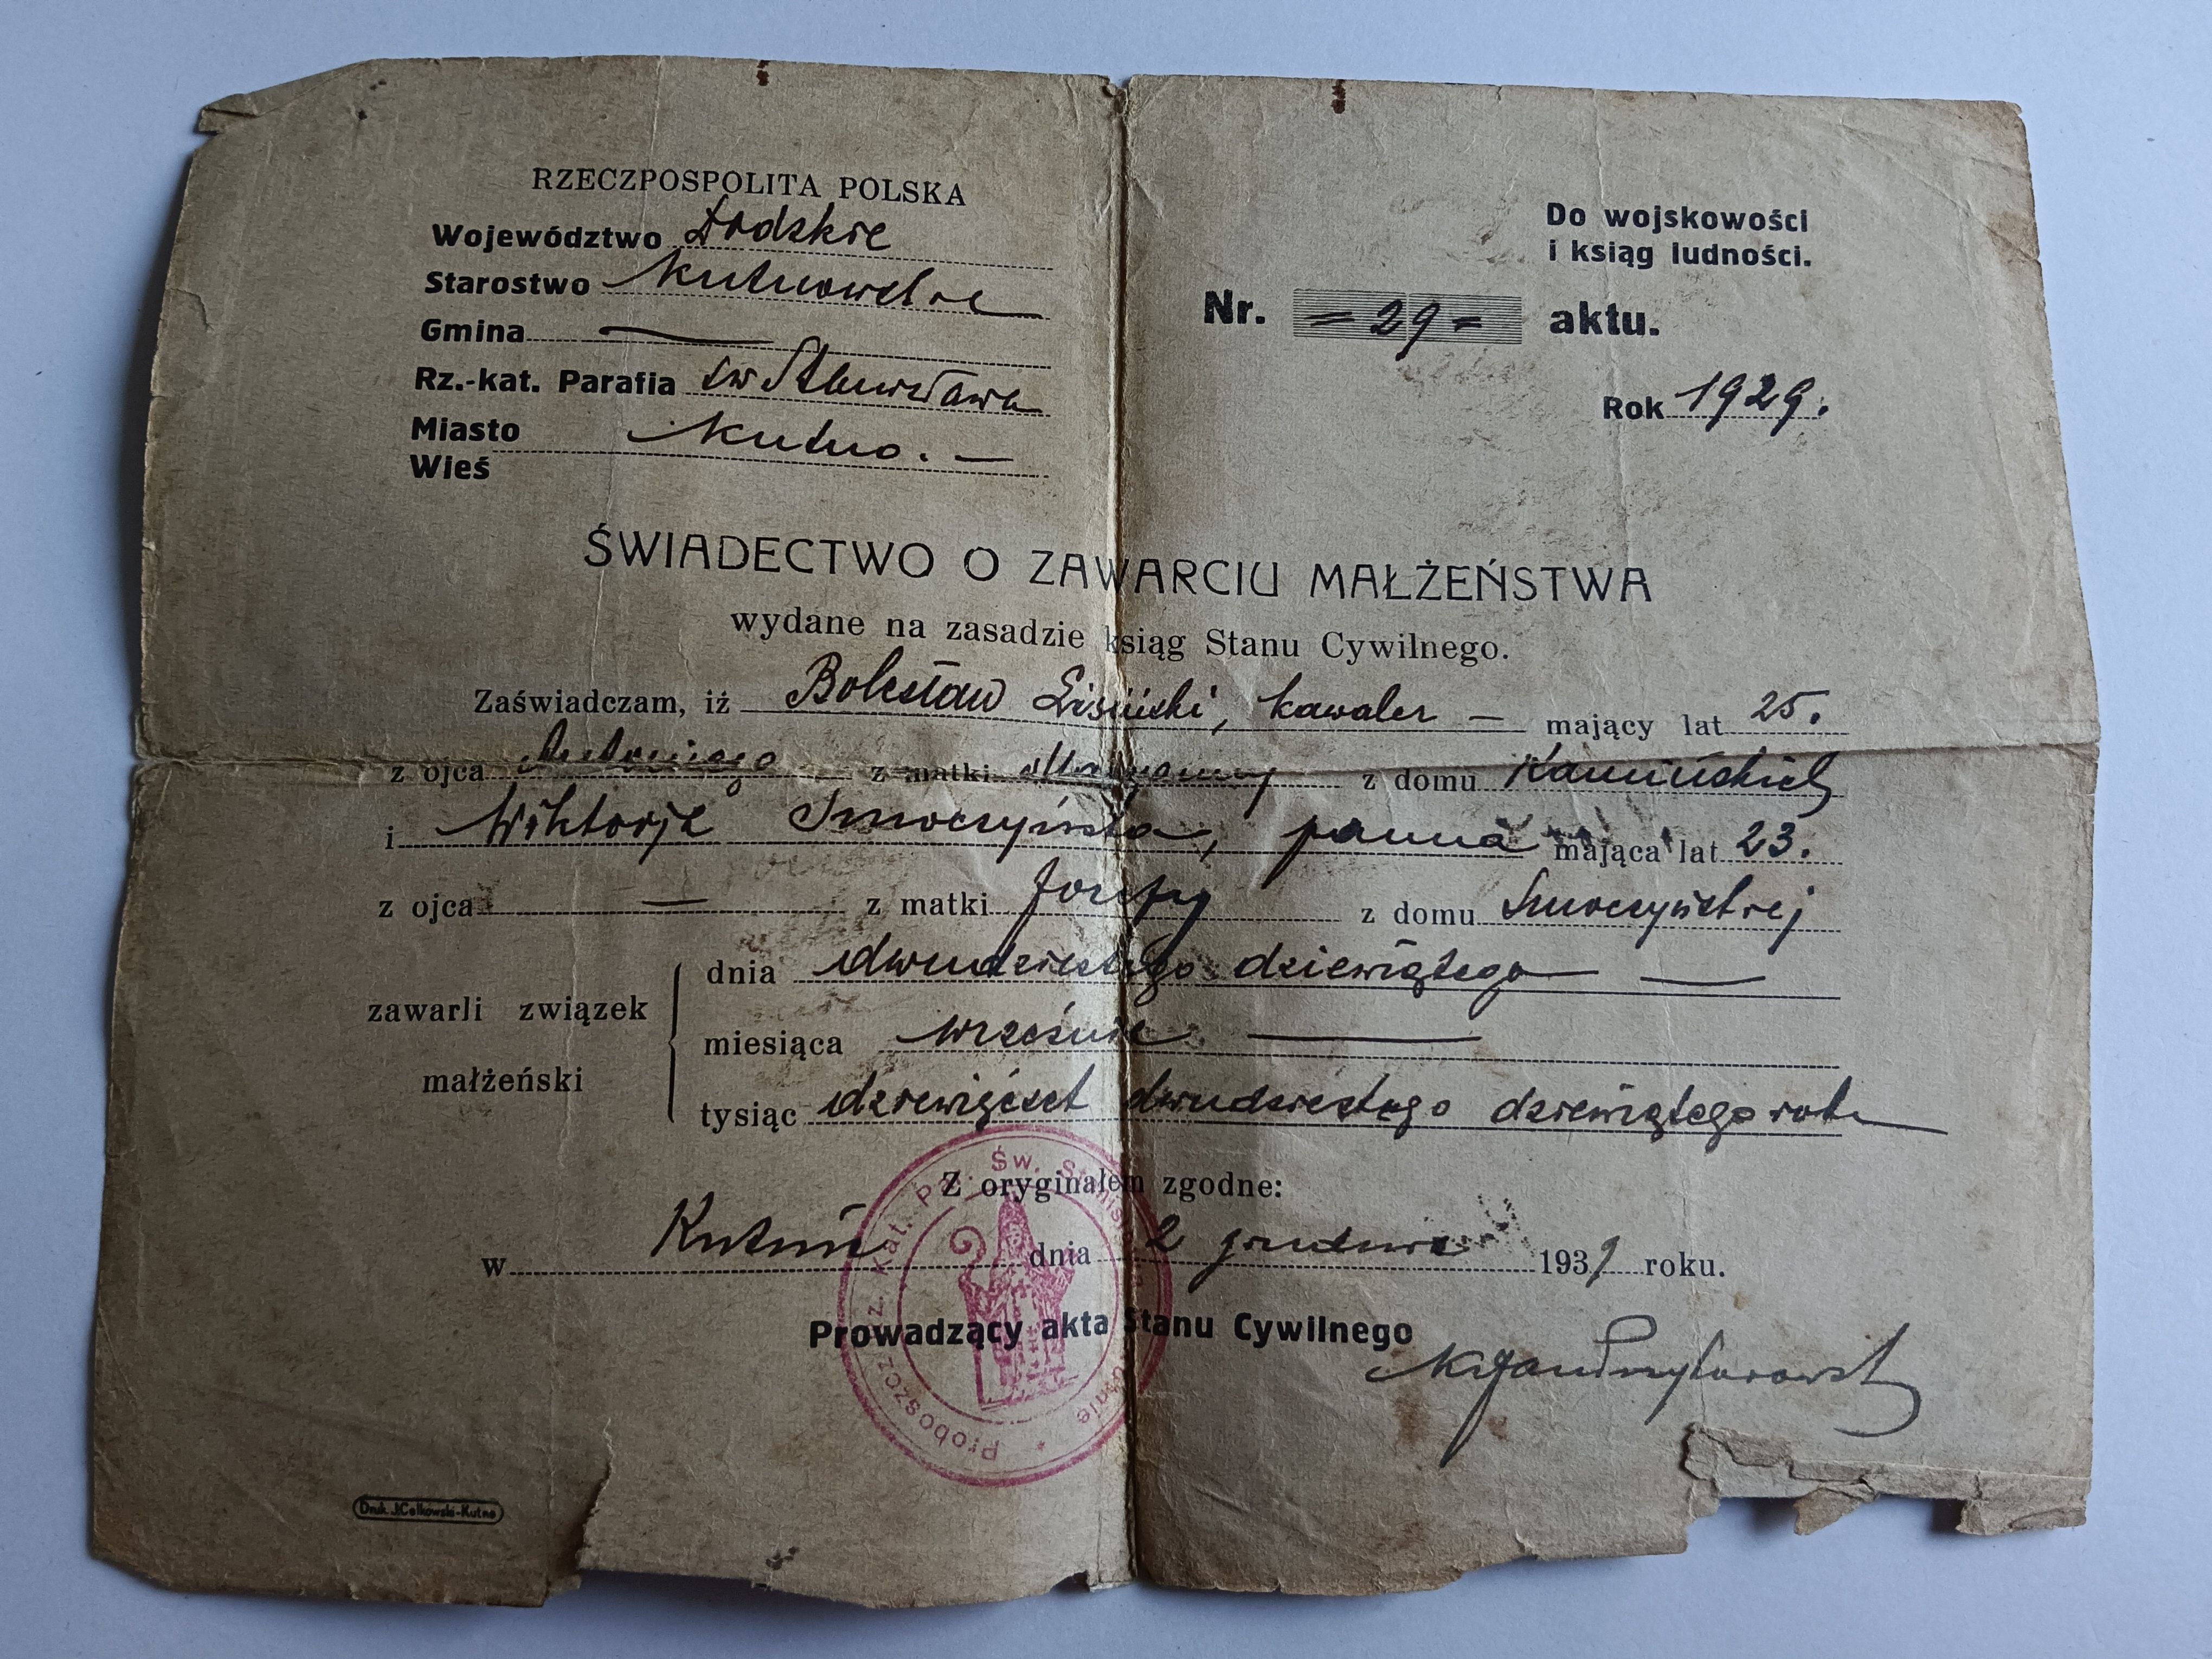 RZECZPOSPOLITA POLSKA
Województwo Łódzkie
Starostwo Kutnowskie
Gmina
Rz.-kat. Parafia św Stanisława
Miasto Kutno. —
Wieś
Do wojskowości
i ksiąg ludności.
Nr. = 29 = aktu.
Rok 1929.
ŚWIADECTWO O ZAWARCIU MAŁŻEŃSTWA
wydane na zasadzie ksiąg Stanu Cywilnego.
Zaświadczam, iż Bolesław kawaler — mający lat 25.
z ojca Antoniego z matki Marjanny z domu Kamińskich
i Wiktorja Smoczyńska, panna mająca lat 23.
z ojca — z matki Józefy z domu Smoczyńskiej
zawarli związek małżeński
dnia dwudziestego dziewiątego —
miesiąca września —
tysiąc dziewięćset dwudziestego dziewiątego roku
Z oryginałem zgodne:
w Kutnie dnia 2 grudnia 1939 roku.
Prowadzący akta Stanu Cywilnego
Proboszcz Rz. Kat. Par. Św. Stanisława w Kutnie *
Druk. J. Całkowski-Kutno